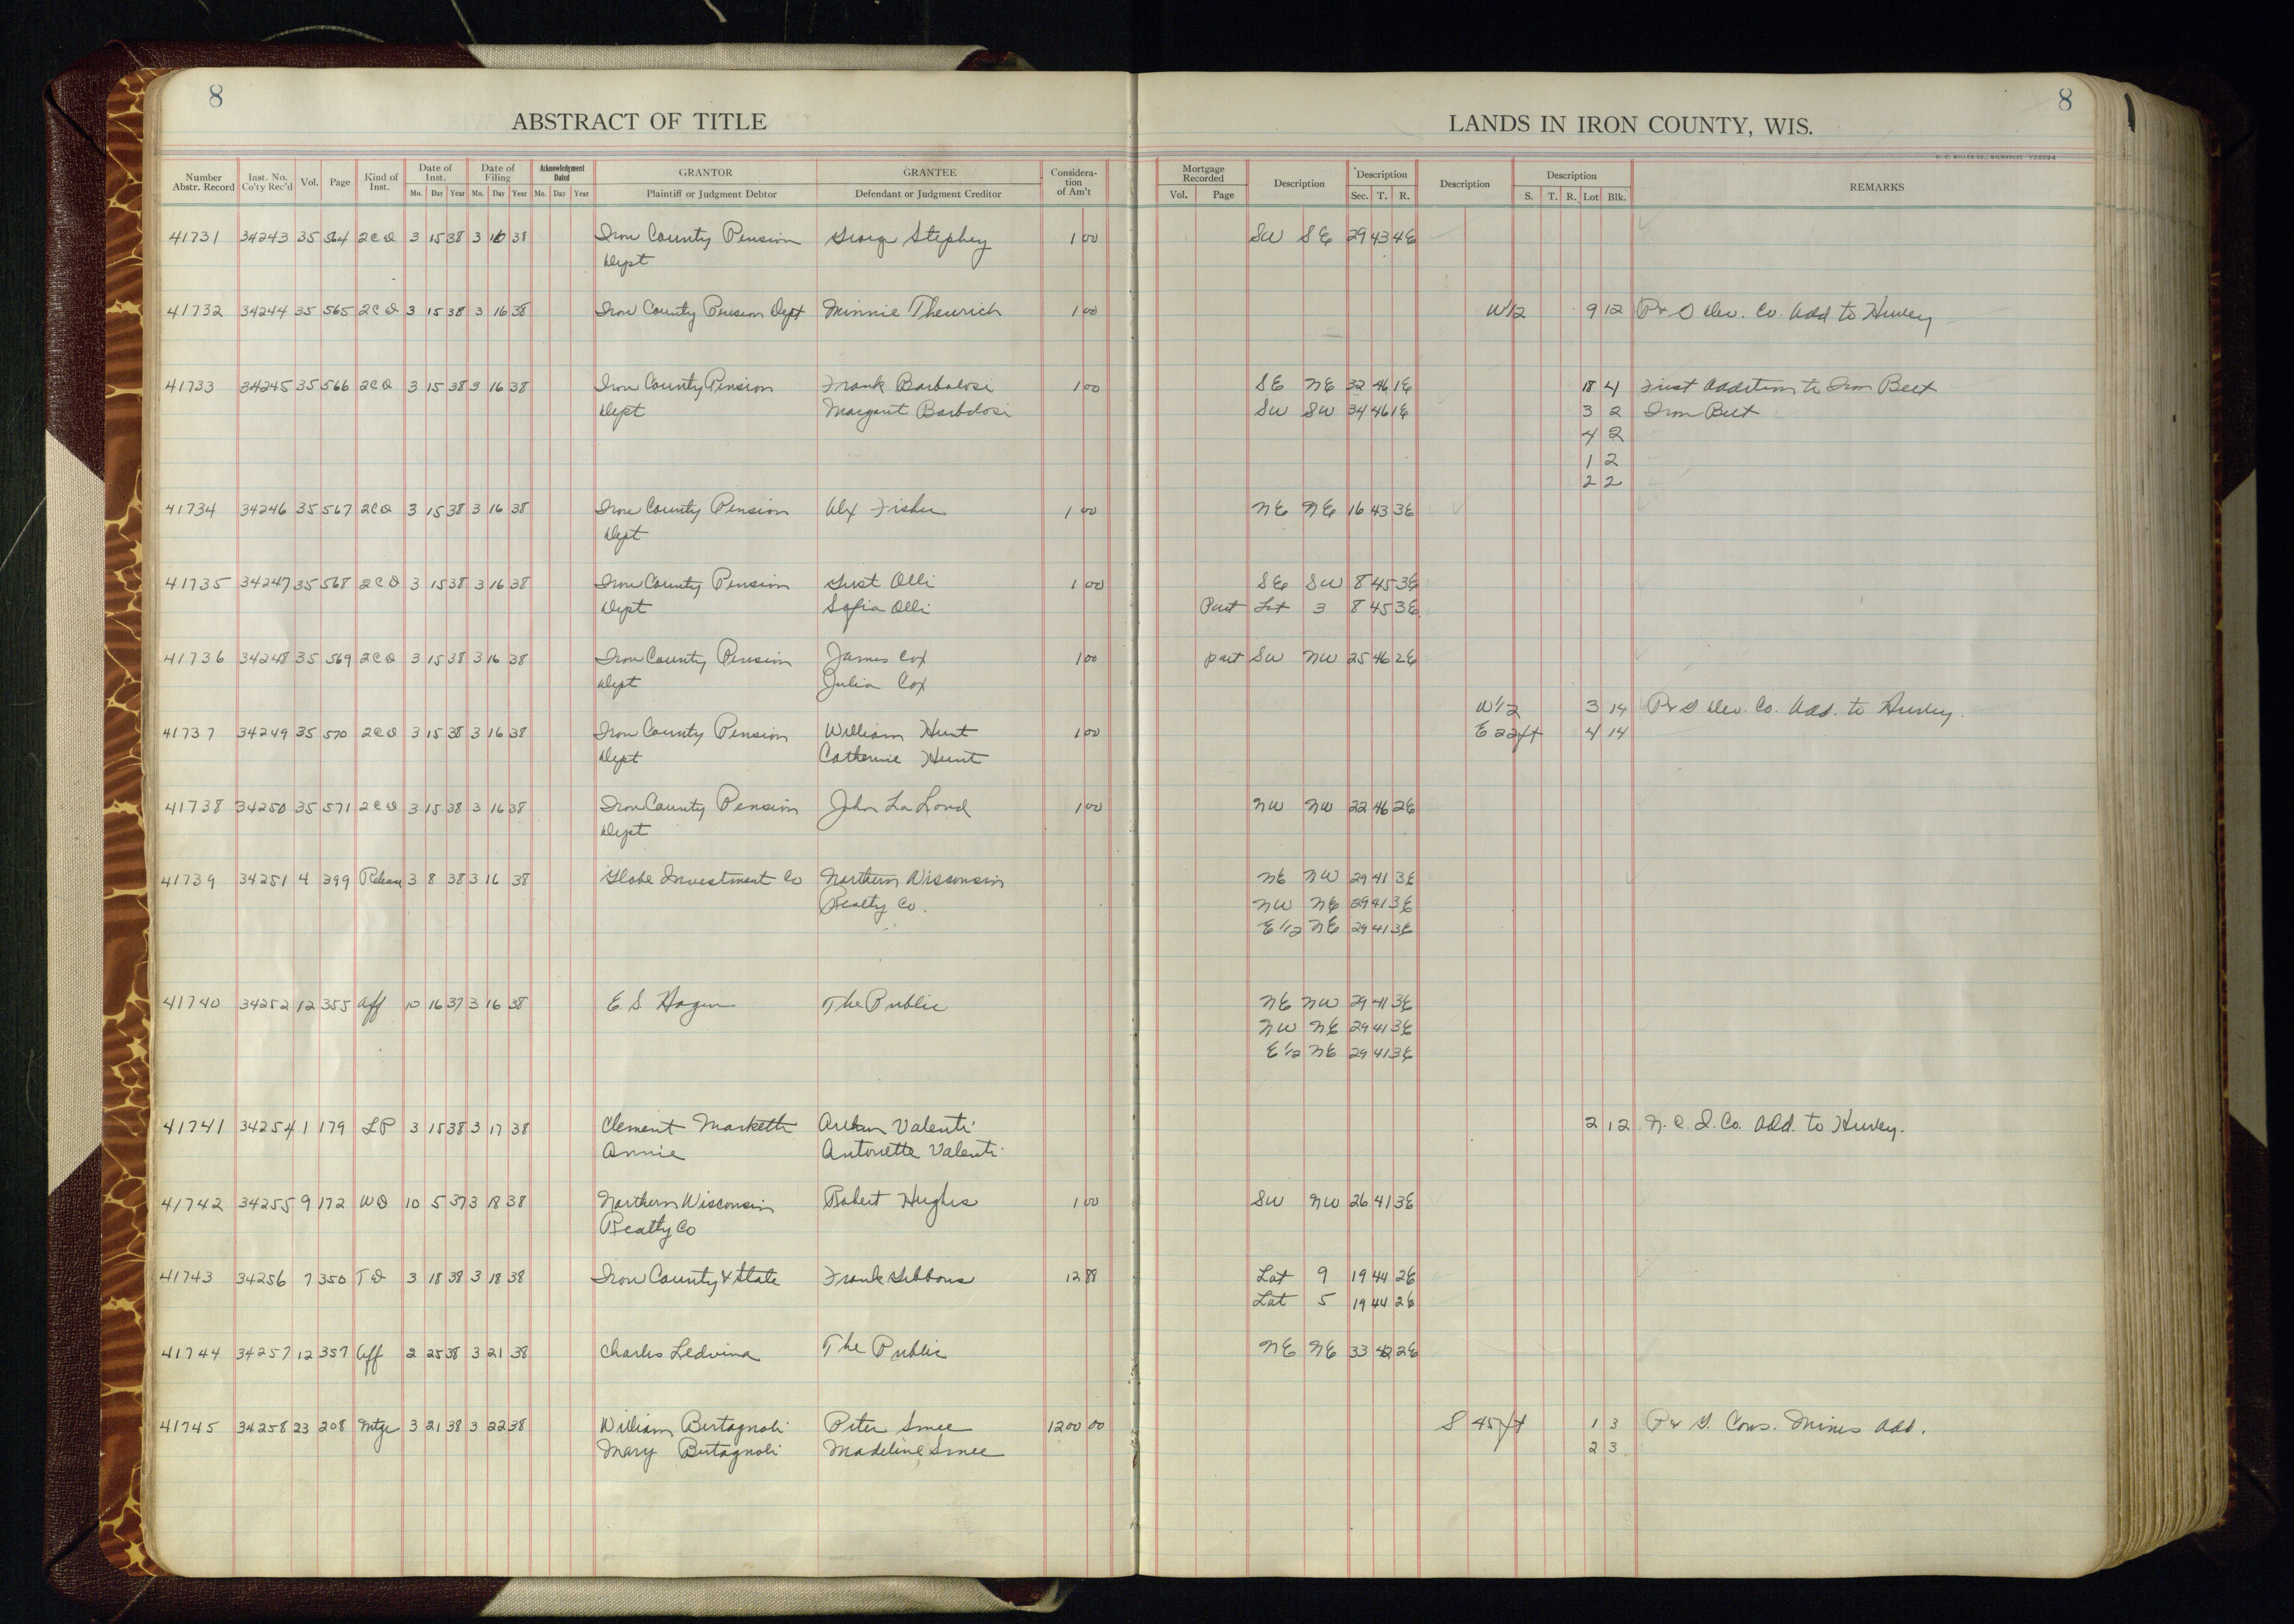 8
8
ABSTRACT OF TITLE
LANDS IN IRON COUNTY, WIS.
H. C. MILLER CO., MILWAUKEE Y28594
Number Abstr. Record Inst. No. Co'ty Rec'd Vol. Page Kind of Inst. Date of Inst. Mo. Day Year Date of Filing Mo. Day Year Acknowledgment Dated Mo. Day Year GRANTOR Plaintiff or Judgment Debtor GRANTEE Defendant or Judgment Creditor Considera-tion of Am't Mortgage Recorded Vol. Page Description Description Sec. T. R. Description Description S. T. R. Lot Blk. REMARKS
41731 34243 35 564 2CD 3 15 38 3 16 38 Iron County Pension George Stephey 1 00 SW SE 29 43 4E
Dept
41732 34244 35 565 2CD 3 15 38 3 16 38 Iron County Pension Dept Minnie Theurich 1 00 W1/2 9 12 P & D Dev. Co. Add to Hurley
41733 34245 35 566 2CD 3 15 38 3 16 38 Iron County Pension Frank Barbolosi 1 00 SE NE 32 46 1E 18 4 First Addition to Iron Belt
Dept Margaret Barbolosi SW SW 34 46 1E 3 2 Iron Belt
4 2
1 2
2 2
41734 34246 35 567 2CD 3 15 38 3 16 38 Iron County Pension Alex Fisher 1 00 NE NE 16 43 3E
Dept
41735 34247 35 568 2CD 3 15 38 3 16 38 Iron County Pension Gust Olli 1 00 SE SW 8 45 3E
Dept Sofia Olli Part Lot 3 8 45 3E
41736 34248 35 569 2CD 3 15 38 3 16 38 Iron County Pension James Cox 1 00 part SW NW 25 46 2E
Dept Julia Cox
W1/2 3 14 P & D Dev. Co. Add. to Hurley.
41737 34249 35 570 2CD 3 15 38 3 16 38 Iron County Pension William Hunt 1 00 E 22ft 4 14
Dept Catherine Hunt
41738 34250 35 571 2CD 3 15 38 3 16 38 Iron County Pension John La Lond 1 00 NW NW 22 46 2E
Dept
41739 34251 4 399 Release 3 8 38 3 16 38 Globe Investment Co Northern Wisconsin NE NW 29 41 3E
Realty Co. NW NE 29 41 3E
E1/2 NE 29 41 3E
41740 34252 12 355 Aff 10 16 37 3 16 38 E. S. Hagen The Public NE NW 29 41 3E
NW NE 29 41 3E
E1/2 NE 29 41 3E
41741 34254 1 179 LP 3 15 38 3 17 38 Clement Valenti 2 12 N. C. I. Co. Add. to Hurley.
Annie Antoinette Valenti
41742 34255 9 172 WD 10 5 37 3 18 38 Northern Wisconsin Robert Hughes 1 00 SW NW 26 41 3E
Realty Co
41743 34256 7 350 TD 3 18 38 3 18 38 Iron County & State Frank Gibbons 12 88 Lot 9 19 44 2E
Lot 5 19 44 2E
41744 34257 12 357 Aff 2 25 38 3 21 38 Charles Ledvina The Public NE NE 33 42 2E
41745 34258 23 208 Mtge 3 21 38 3 22 38 William Bertagnoli Peter Smee 1200 00 S 45ft 1 3 P & G. Cons. Mines Add.
Mary Bertagnoli Madeline Smee 2 3